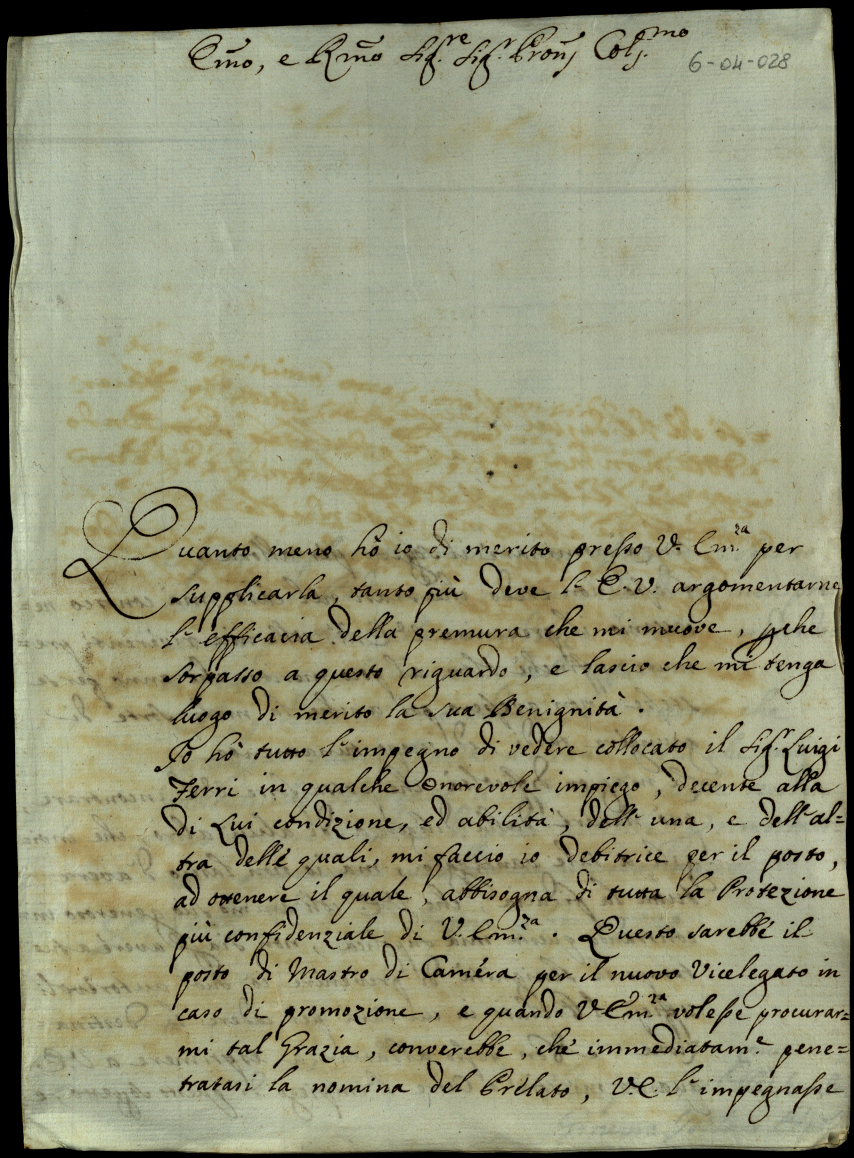 Emo, e Rmo Sig.re Sig.r Pron Col.mo
6-04-028
Quanto meno hò io di merito presso V. Em.za per
supplicarla, tanto più deve l'E.V. argomentarne
l'efficacia della premura che mi muove, pche
sorpasso a questo riguardo, e lascio che mi tenga
luogo di merito la sua Benignità.
Io hò tutto l'impegno di vedere collocato il Sig.r Luigi
Ferri in qualche onorevole impiego, decente alla
di Lui condizione, ed abilità, dell'una, e dell'al=
tra delle quali, mi faccio io debitrice per il posto,
ad ottenere il quale, abbisogna di tutta la Protezione
più confidenziale di V. Em.za. Questo sarebbe il
posto di Mastro di Camera per il nuovo Vicelegato in
caso di promozione, e quando V Em.za volesse procurar=
mi tal Grazia, converebbe, che immediatam.e pene=
tratasi la nomina del Prelato, V.E. l'impegnasse